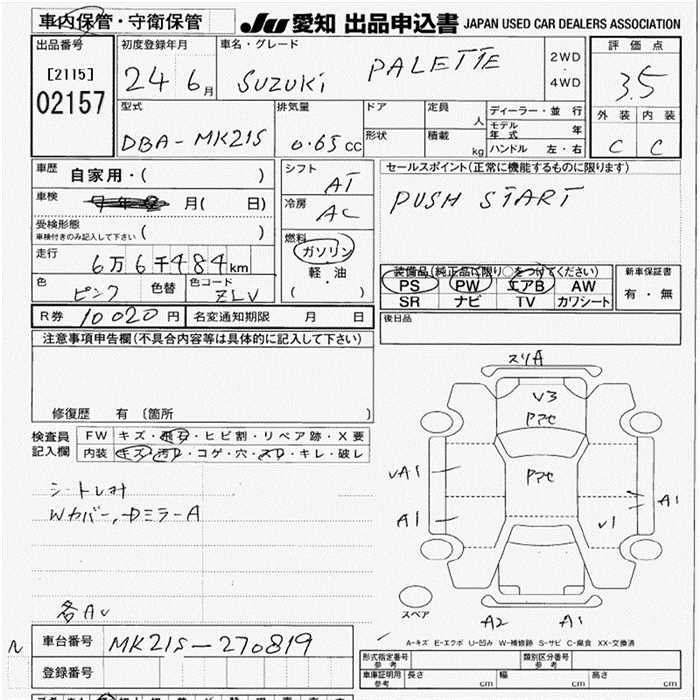 車内保管・守衛保管
JU 愛知 出品申込書 JAPAN USED CAR DEALERS ASSOCIATION
出品番号
[2115]
02157
初度登録年月
24 6月
車名・グレード
SUZUKI PALETTE
2WD
・
4WD
評価点
3.5
外装 内装
C C
型式
DBA-MK21S
排気量
0.65 cc
ドア
定員
人
形状
積載
kg
ディーラー・並行
モデル年式 年
ハンドル 左・右
車歴
自家用・( )
車検
月( 日)
受検形態
車検付きのみ記入して下さい ( )
走行
6万6千484km
色
ピンク
色替
色コード
ZLV
シフト
AT
冷房
AC
燃料
ガソリン
軽・油
( )
セールスポイント(正常に機能するものに限ります)
PUSH START
装備品(純正品に限り○をつけてください)
PS PW エアB AW
SR ナビ TV カワシート
新車保証書
有・無
R券 10020円 名変通知期限 月 日
後日品
注意事項申告欄(不具合内容等は具体的に記入して下さい)
修復歴 有〔箇所 〕
検査員記入欄
FW キズ・飛石・ヒビ割・リペア跡・X要
内装 キズ・汚レ・コゲ・穴・スレ・キレ・破レ
Wカバー,中ミラーA
スリA
V3
Pアセ
Pアセ
UA1
A1
A1
V1
スペア
A2 A1
各AU
A-キズ E-エクボ U-凹み W-補修跡 S-サビ C-腐食 XX-交換済
車台番号 MK21S-270819
登録番号
形式指定番号
参考
類別区分番号
参考
車庫証明用
参考
長さ cm 幅 cm 高さ cm